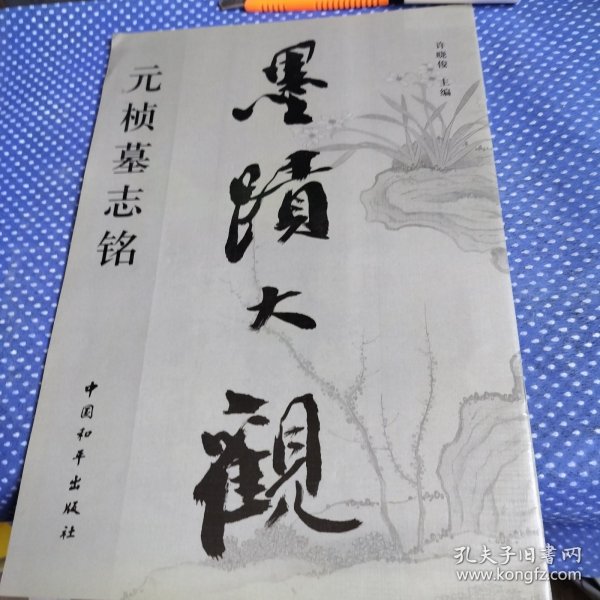 许晓俊 主编
墨蹟大觀
元桢墓志铭
中国和平出版社
孔夫子旧書网
www.kongfz.com